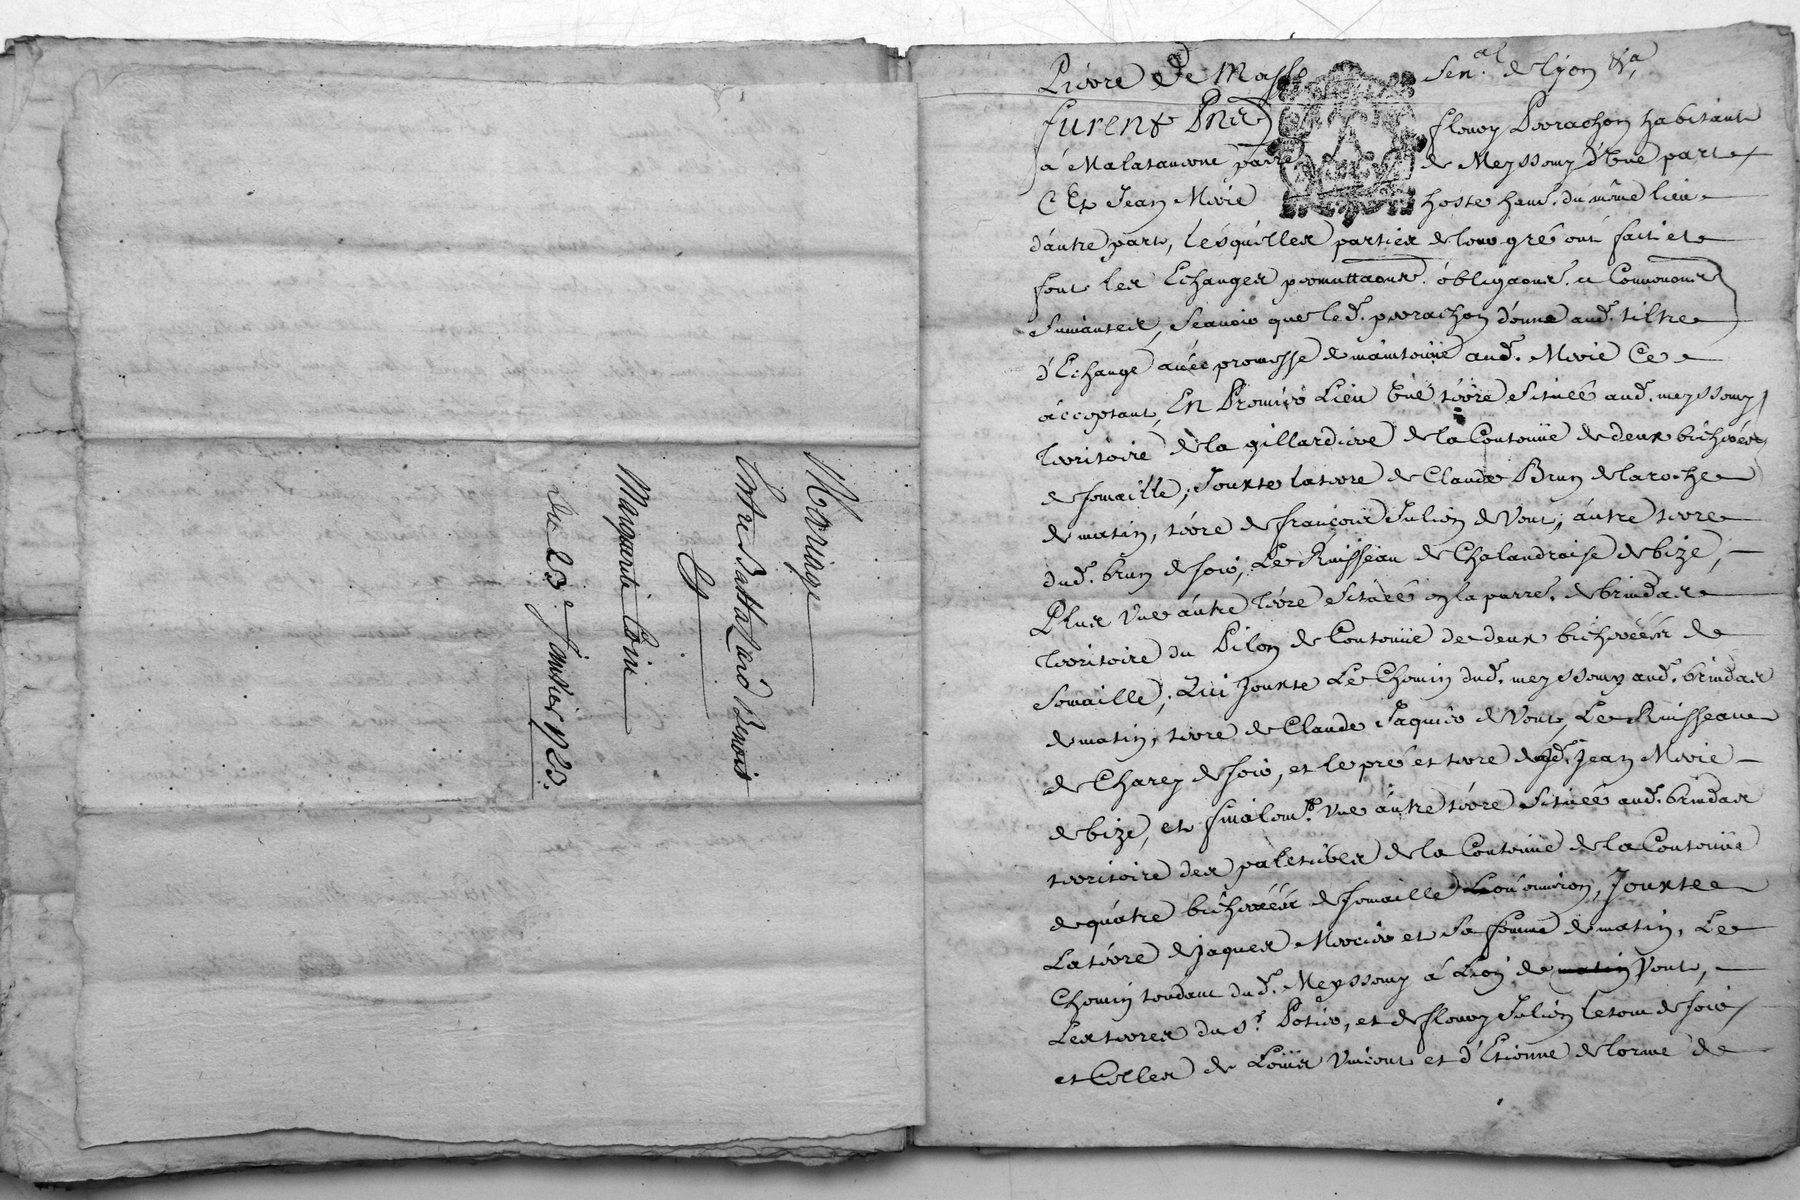 Mariage
Entre Balthazard Benoit
Et
Marguerite
du 23e Janvier 1723.
Pierre De Masso Sen.al de Lyon &a
furent Pnts fleury Perrachon habitant
à Malataverne parre de Meyssomy d'Une part
Et Jean Merie hoste hant. du même lieu
d'autre part, lesquelles parties de leur gré ont fait et
font les Echanges permuttaons. obligaons. et Convenons
suivantes, scavoir que led. perrachon donne aud. tiltre
d'Echange avec promesse de maintenüe aud. Merie Ce
acceptant, En Premier Lieu Une terre Scituée aud. meyssomy
territoire de la gillardiere de la Contenüe de deux bicherées
de semaille, Jouxte la terre de Claude Brun de laroche
de matin, terre de françois Julien de Vent, autre terre
dud. brun de soir, Le Ruisseau de Chalandraise de bize,
Plus Une autre terre Scituée en la parre. de brindas
territoire du Pilon de Contenüe de deux bicherées de
semaille, Qui Jouxte Le Chemin dud. meyssomy aud. brindas
de matin, terre de Claude Jaquier de Vent, Le Ruisseau
de Charey de soir, et le pré et terre dud. Jean Merie
de bize, et finalemt. Une autre terre Scituée aud. brindas
territoire des de la Contenüe de la Contenüe
de quatre bicherées de semaille Lou' environ, Jouxte
La terre de Jaques Mercier et Sa femme de matin, Le
Chemin tendant dud. Meyssomy à Lion de matin Vent,
Les terres du Sr. Potier, et de fleury Julien le tout de soir
et Celles de Loüis Vincent et d'Etienne de lorme de